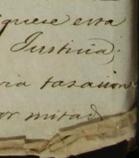 quiere esta
Justicia;
ria tasacion
or mitad